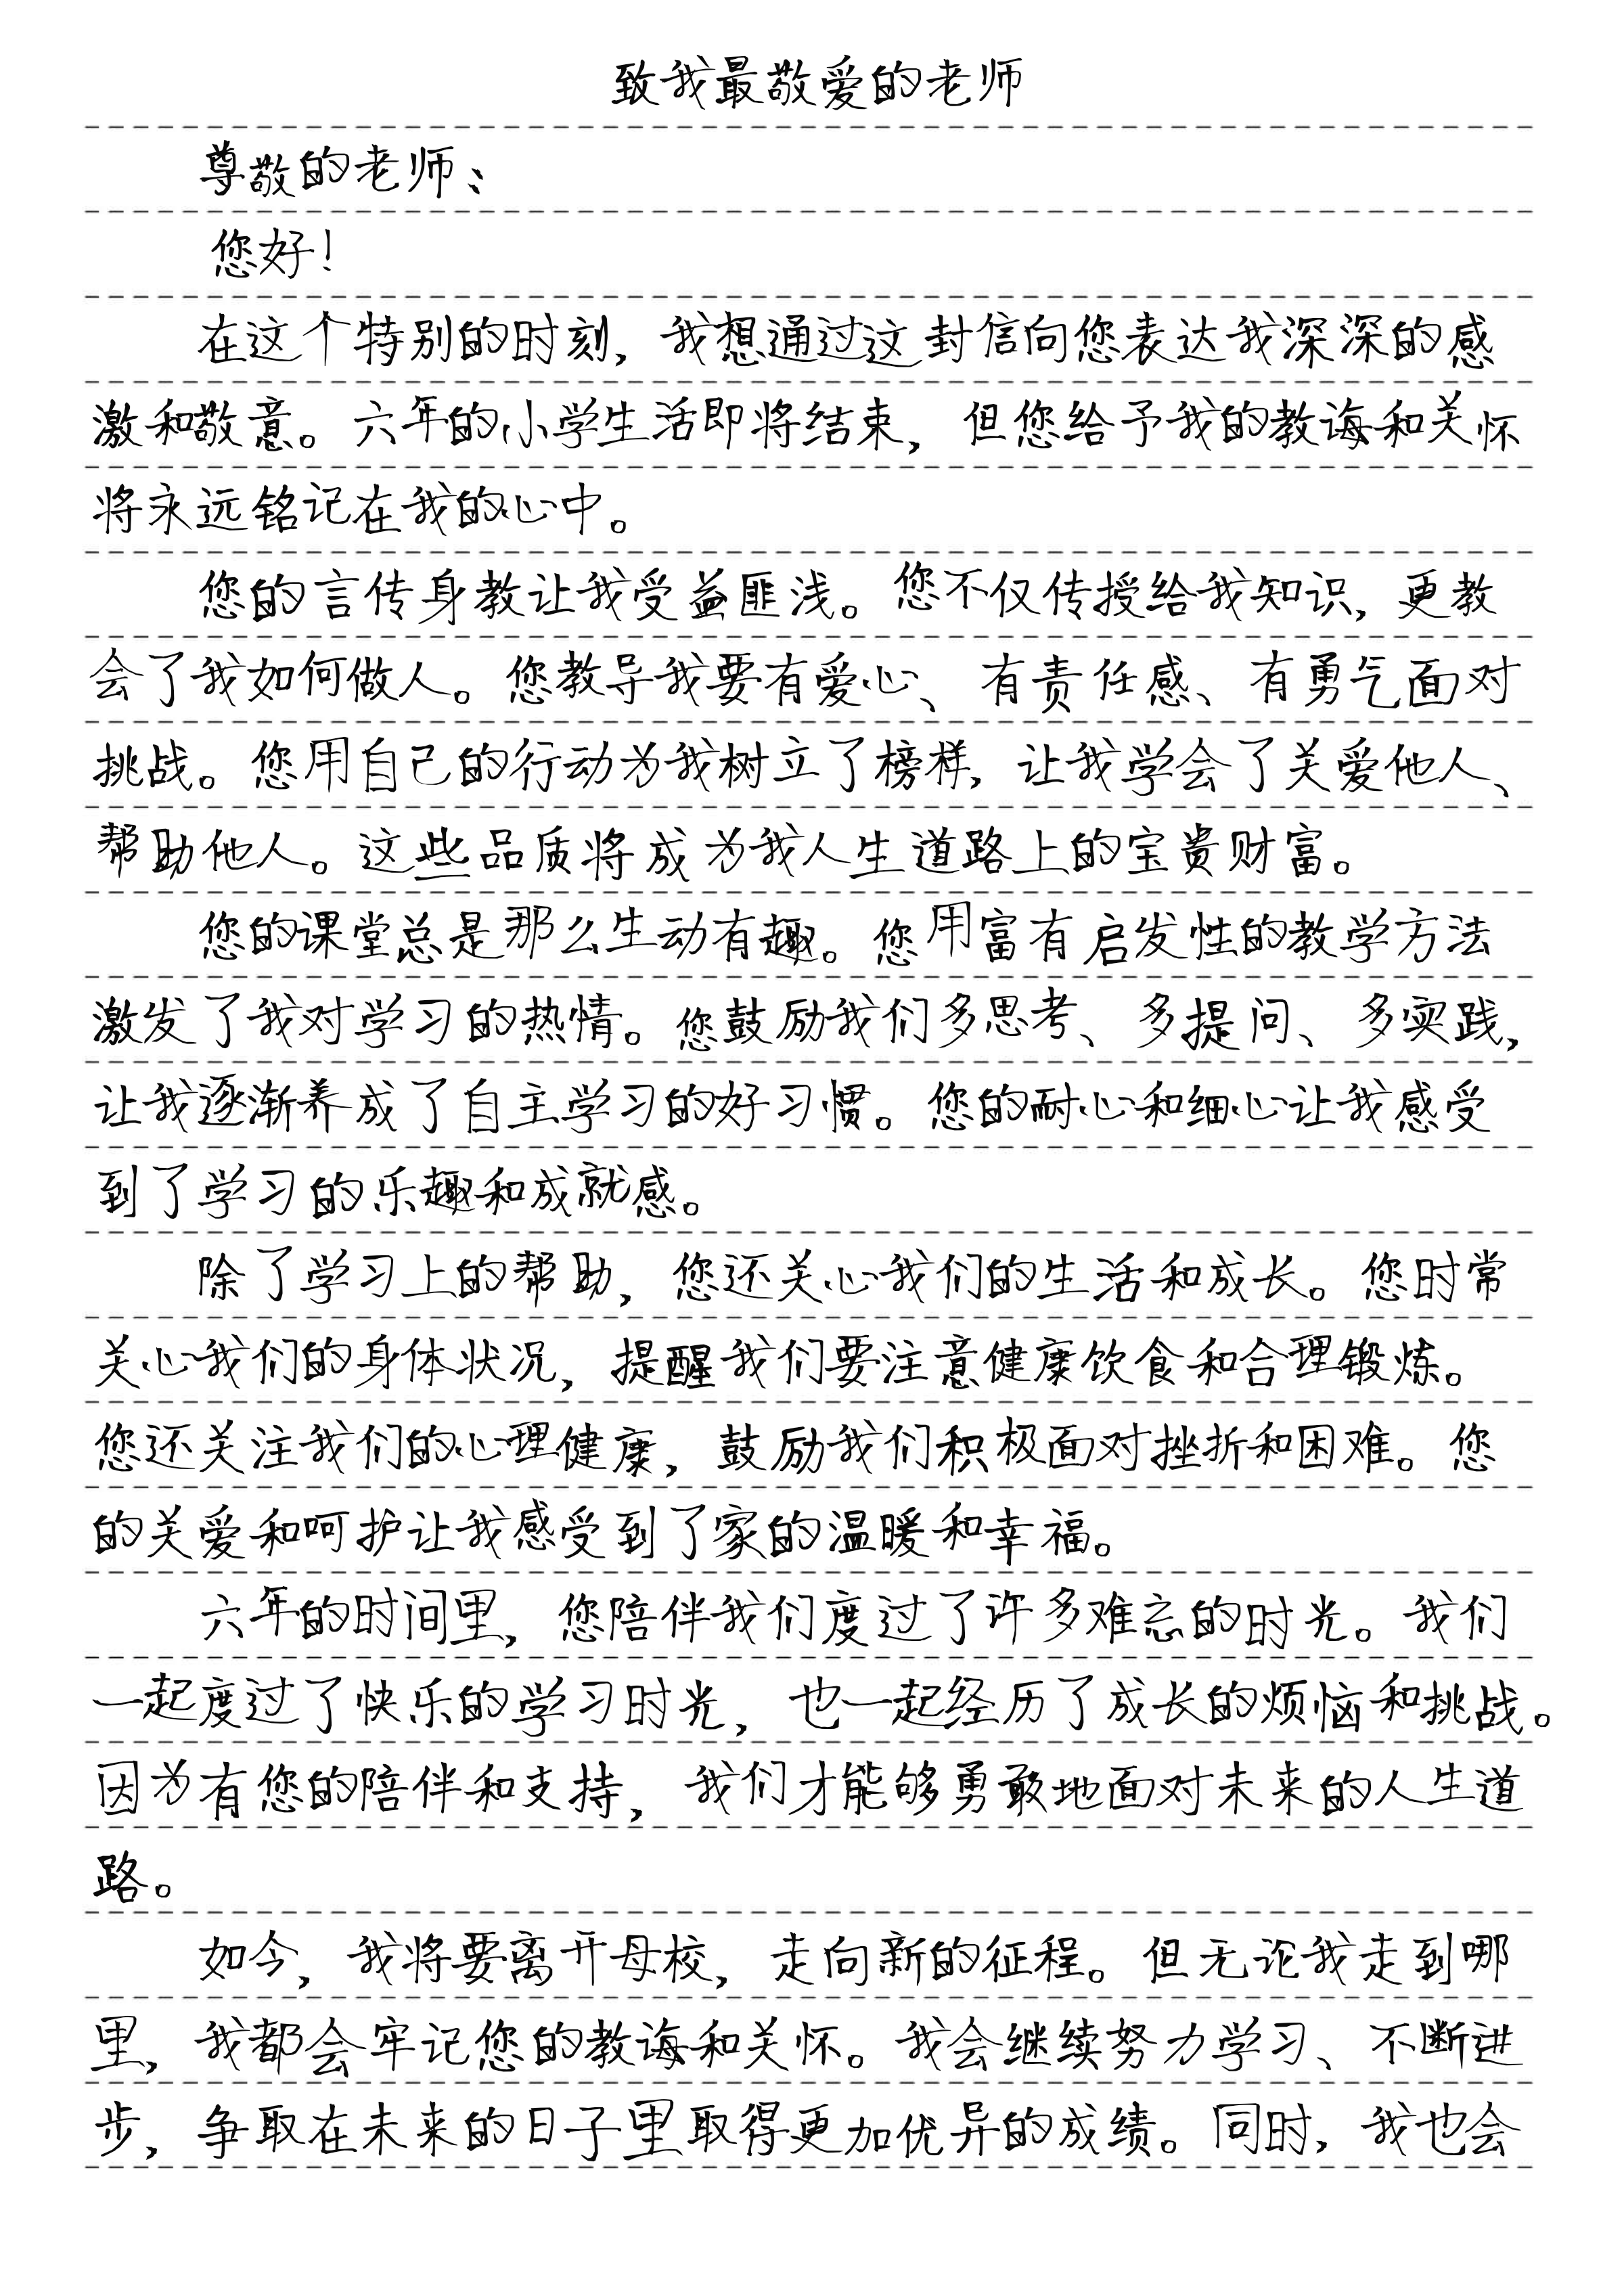 致我最敬爱的老师
尊敬的老师：
您好！
在这个特别的时刻，我想通过这封信向您表达我深深的感
激和敬意。六年的小学生活即将结束，但您给予我的教诲和关怀
将永远铭记在我的心中。
您的言传身教让我受益匪浅。您不仅传授给我知识，更教
会了我如何做人。您教导我要有爱心、有责任感、有勇气面对
挑战。您用自己的行动为我树立了榜样，让我学会了关爱他人、
帮助他人。这些品质将成为我人生道路上的宝贵财富。
您的课堂总是那么生动有趣。您用富有启发性的教学方法
激发了我对学习的热情。您鼓励我们多思考、多提问、多实践，
让我逐渐养成了自主学习的好习惯。您的耐心和细心让我感受
到了学习的乐趣和成就感。
除了学习上的帮助，您还关心我们的生活和成长。您时常
关心我们的身体状况，提醒我们要注意健康饮食和合理锻炼。
您还关注我们的心理健康，鼓励我们积极面对挫折和困难。您
的关爱和呵护让我感受到了家的温暖和幸福。
六年的时间里，您陪伴我们度过了许多难忘的时光。我们
一起度过了快乐的学习时光，也一起经历了成长的烦恼和挑战。
因为有您的陪伴和支持，我们才能够勇敢地面对未来的人生道
路。
如今，我将要离开母校，走向新的征程。但无论我走到哪
里，我都会牢记您的教诲和关怀。我会继续努力学习、不断进
步，争取在未来的日子里取得更加优异的成绩。同时，我也会